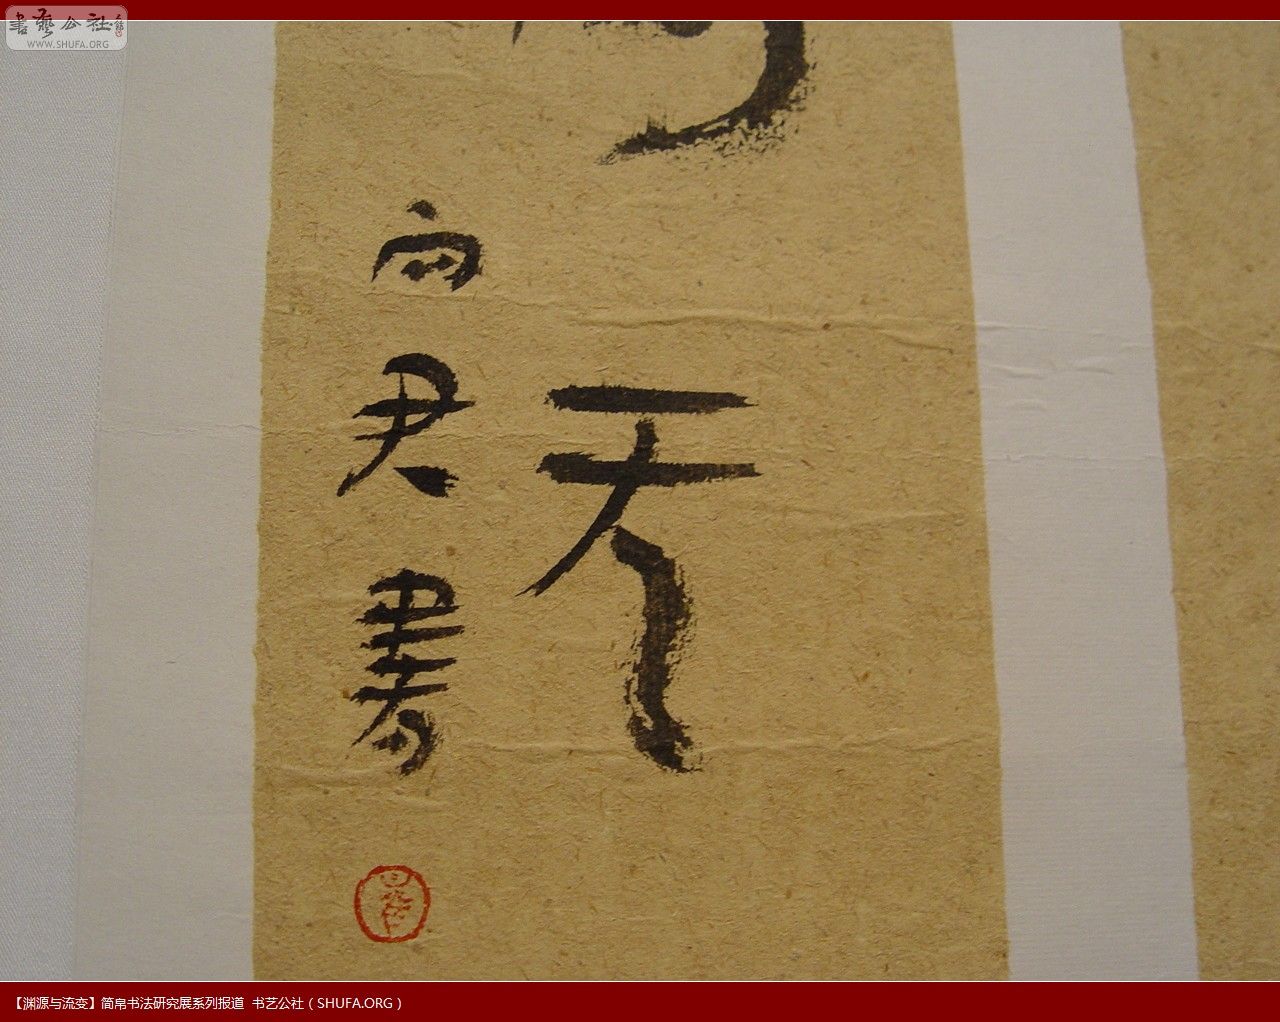 书艺公社
WWW.SHUFA.ORG
天
向君書
【渊源与流变】简帛书法研究展系列报道 书艺公社（SHUFA.ORG）